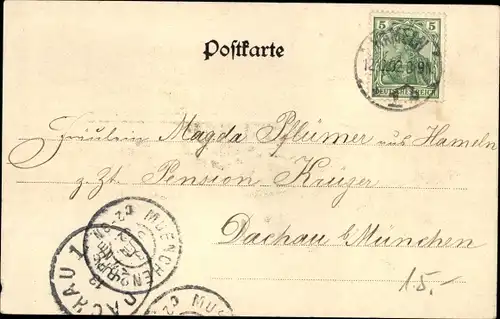 Postkarte
5 5
DEUTSCHES REICH
HAMELN
Fräulein Magda Pflümer aus Hameln
z. Zt. Pension Krüger
Dachau b/München
15.-
MUENCHEN
DACHAU 1